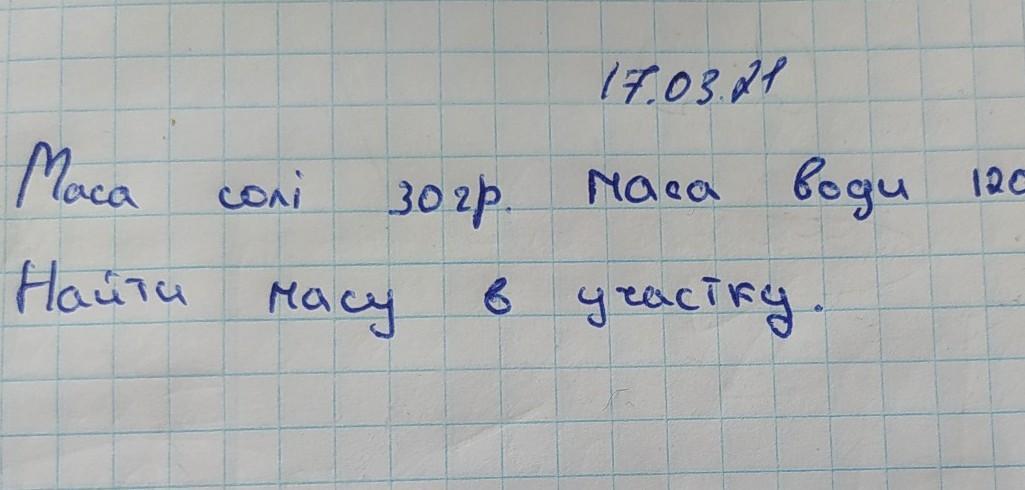 17.03.21
Маса солі 30гр. маса води 120
Найти масу в участку.